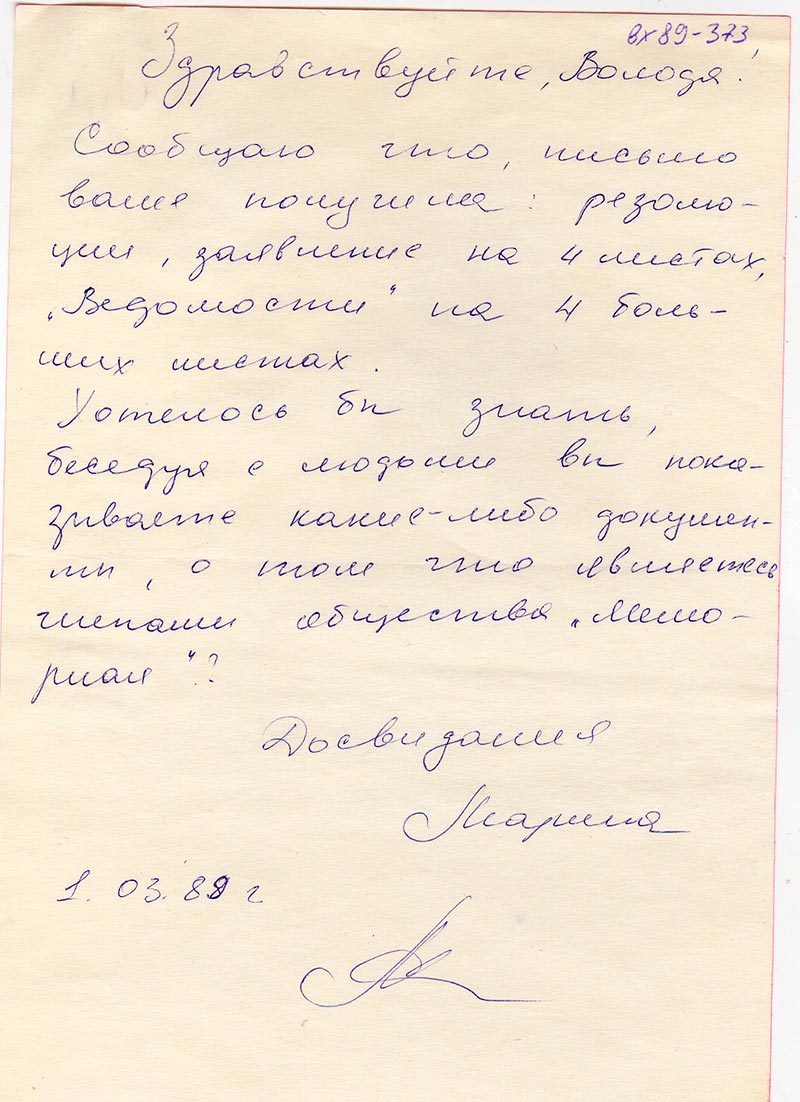 вх89-373
Здравствуйте, Володя!
Сообщаю что, письмо
ваше получила: резолю-
ции, заявление на 4 листах,
„Ведомости" на 4 боль-
ших листах.
Хотелось бы знать,
беседуя с людьми вы пока-
зываете какие-либо докумен-
ты, о том что являетесь
членами общества „Мемо-
риал"?
Досвидания
Марина
1. 03. 89 г